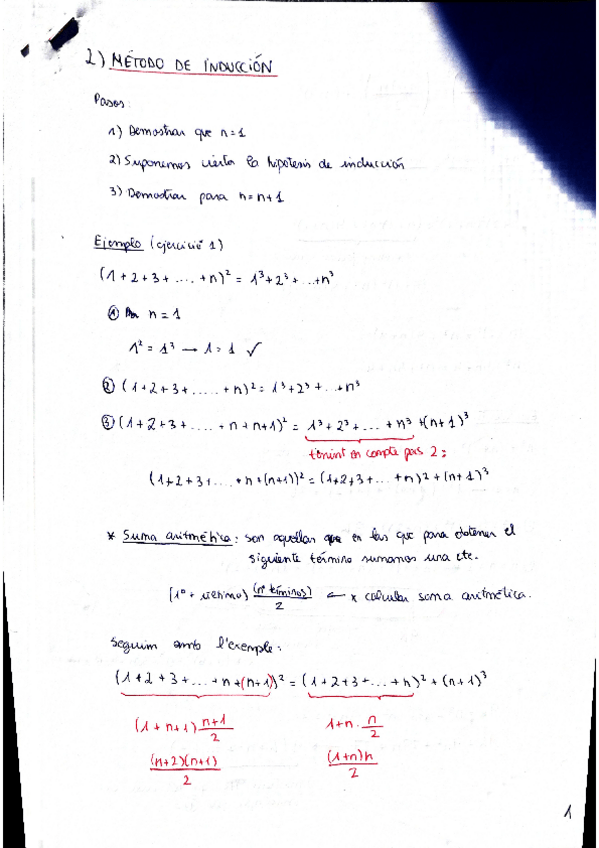 2) MÉTODO DE INDUCCIÓN
Pasos:
1) Demostrar que n=1
2) Suponemos cierta la hipotesis de inducción
3) Demostrar para n=n+1
Ejemplo (ejercicio 1)
(1+2+3+....+n)² = 1³+2³+...+n³
① n=1
1² = 1³ → 1=1 ✓
② (1+2+3+.....+n)² = 1³+2³+...+n³
③ (1+2+3+....+n+n+1)² = 1³+2³+...+n³+(n+1)³
tenint en compte pas 2:
(1+2+3+....+n+(n+1))² = (1+2+3+...+n)²+(n+1)³
* Suma aritmética: son aquellas que en las que para obtener el
siguiente término sumamos una cte.
(1º + último) (nº términos)/2 ← x calcular suma aritmética.
Seguim amb l'exemple:
(1+2+3+...+n+(n+1))² = (1+2+3+...+n)²+(n+1)³
(1+n+1) n+1/2 1+n · n/2
(n+2)(n+1)/2 (1+n)n/2
1